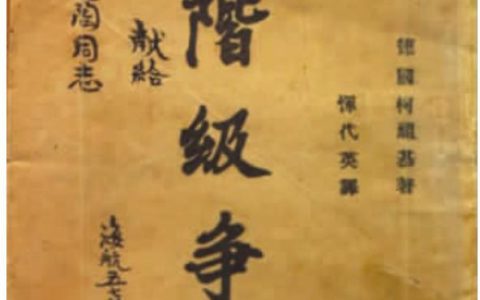 德國柯祖基著
惲代英譯
階級争
献給
陶同志
海航五七